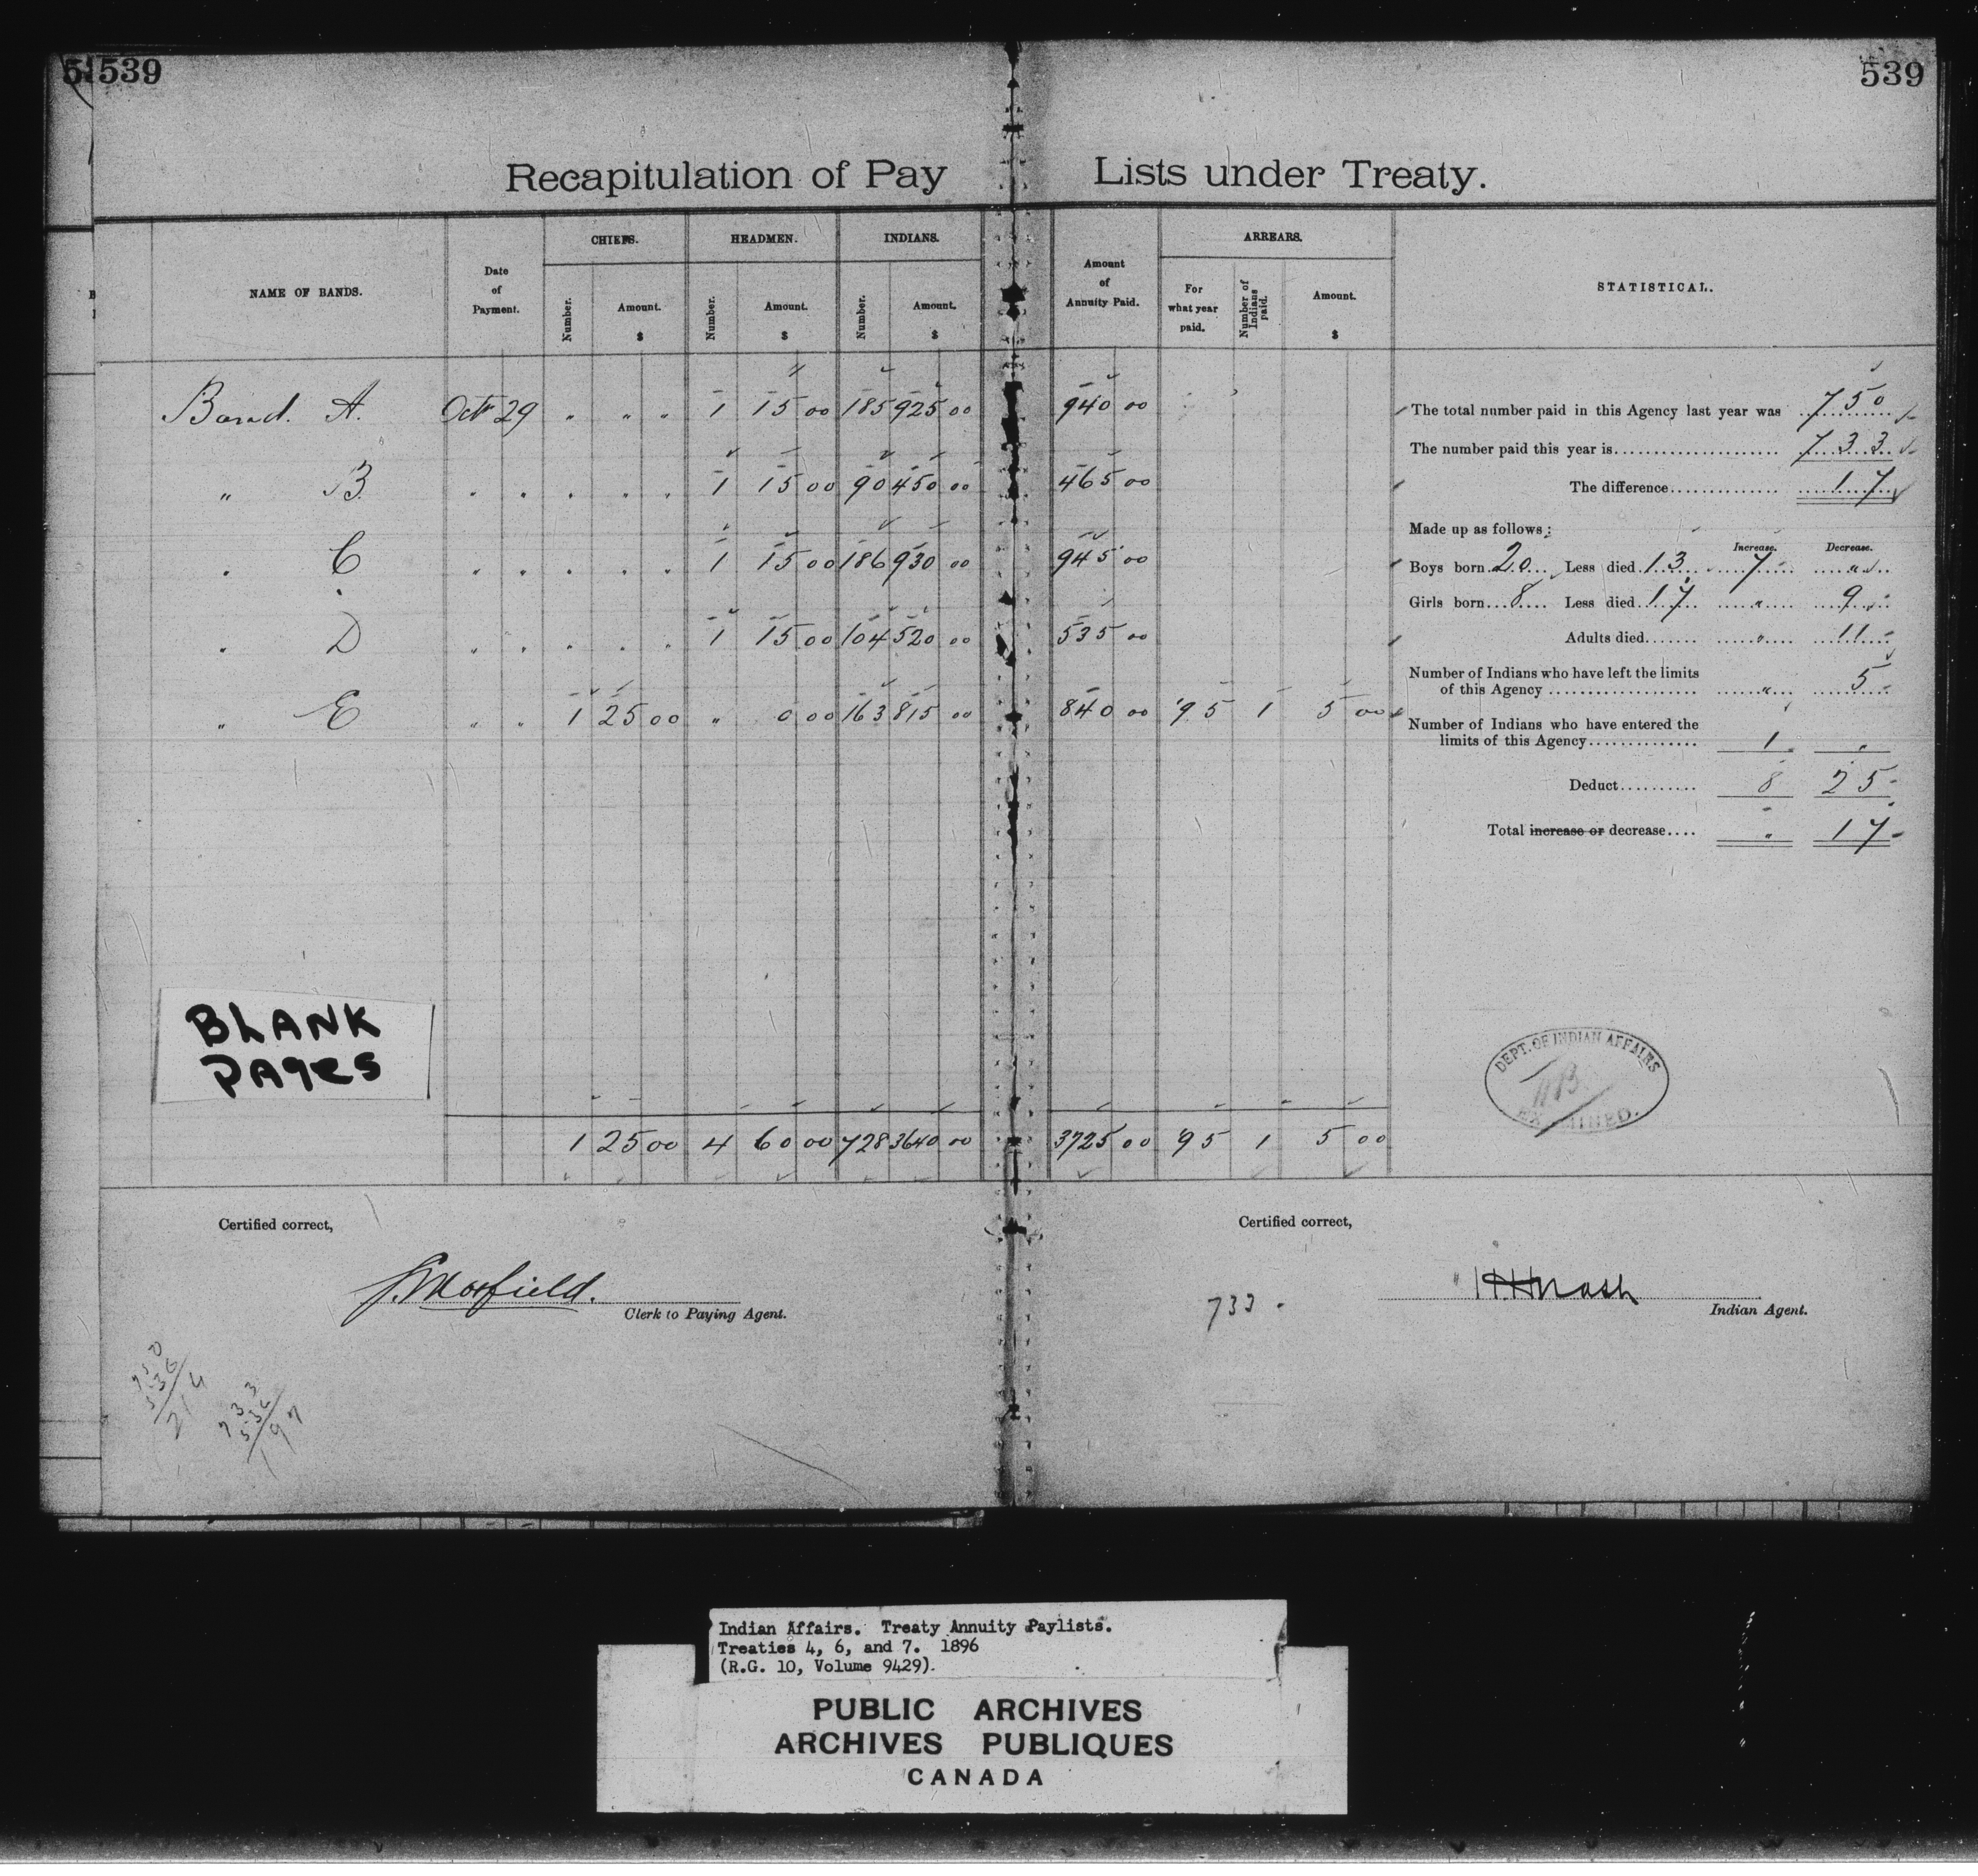 539 539
Recapitulation of Pay Lists under Treaty.
NAME OF BANDS. Date of Payment. CHIEFS. HEADMEN. INDIANS. Amount of Annuity Paid. ARREARS. STATISTICAL.
Number. Amount. $ Number. Amount. $ Number. Amount. $ For what year paid. Number of Indians paid. Amount. $
Band. A. Octr 29 " " " 1 15 00 185 925 00 940 00
" B. " " " " " 1 15 00 90 450 00 465 00
" C " " " " " 1 15 00 186 930 00 945 00
" D " " " " " 1 15 00 104 520 00 535 00
" E " " 1 25 00 " 0 00 163 815 00 840 00 '95 1 5 00
1 25 00 4 60 00 728 3640 00 3725 00 '95 1 5 00
The total number paid in this Agency last year was 750
The number paid this year is 733
The difference 17
Made up as follows:
Increase. Decrease.
Boys born 20 Less died 13 7 "
Girls born 8 Less died 17 " 9
Adults died " 11
Number of Indians who have left the limits
of this Agency " 5
Number of Indians who have entered the
limits of this Agency 1 "
Deduct 8 25
Total increase or decrease " 17
BLANK
PAGES
DEPT. OF INDIAN AFFAIRS
EXAMINED.
Certified correct,
Clerk to Paying Agent.
Certified correct,
733
HHNash
Indian Agent.
750
536
214
733
536
197
Indian Affairs. Treaty Annuity Paylists.
Treaties 4, 6, and 7. 1896
(R.G. 10, Volume 9429).
PUBLIC ARCHIVES
ARCHIVES PUBLIQUES
CANADA